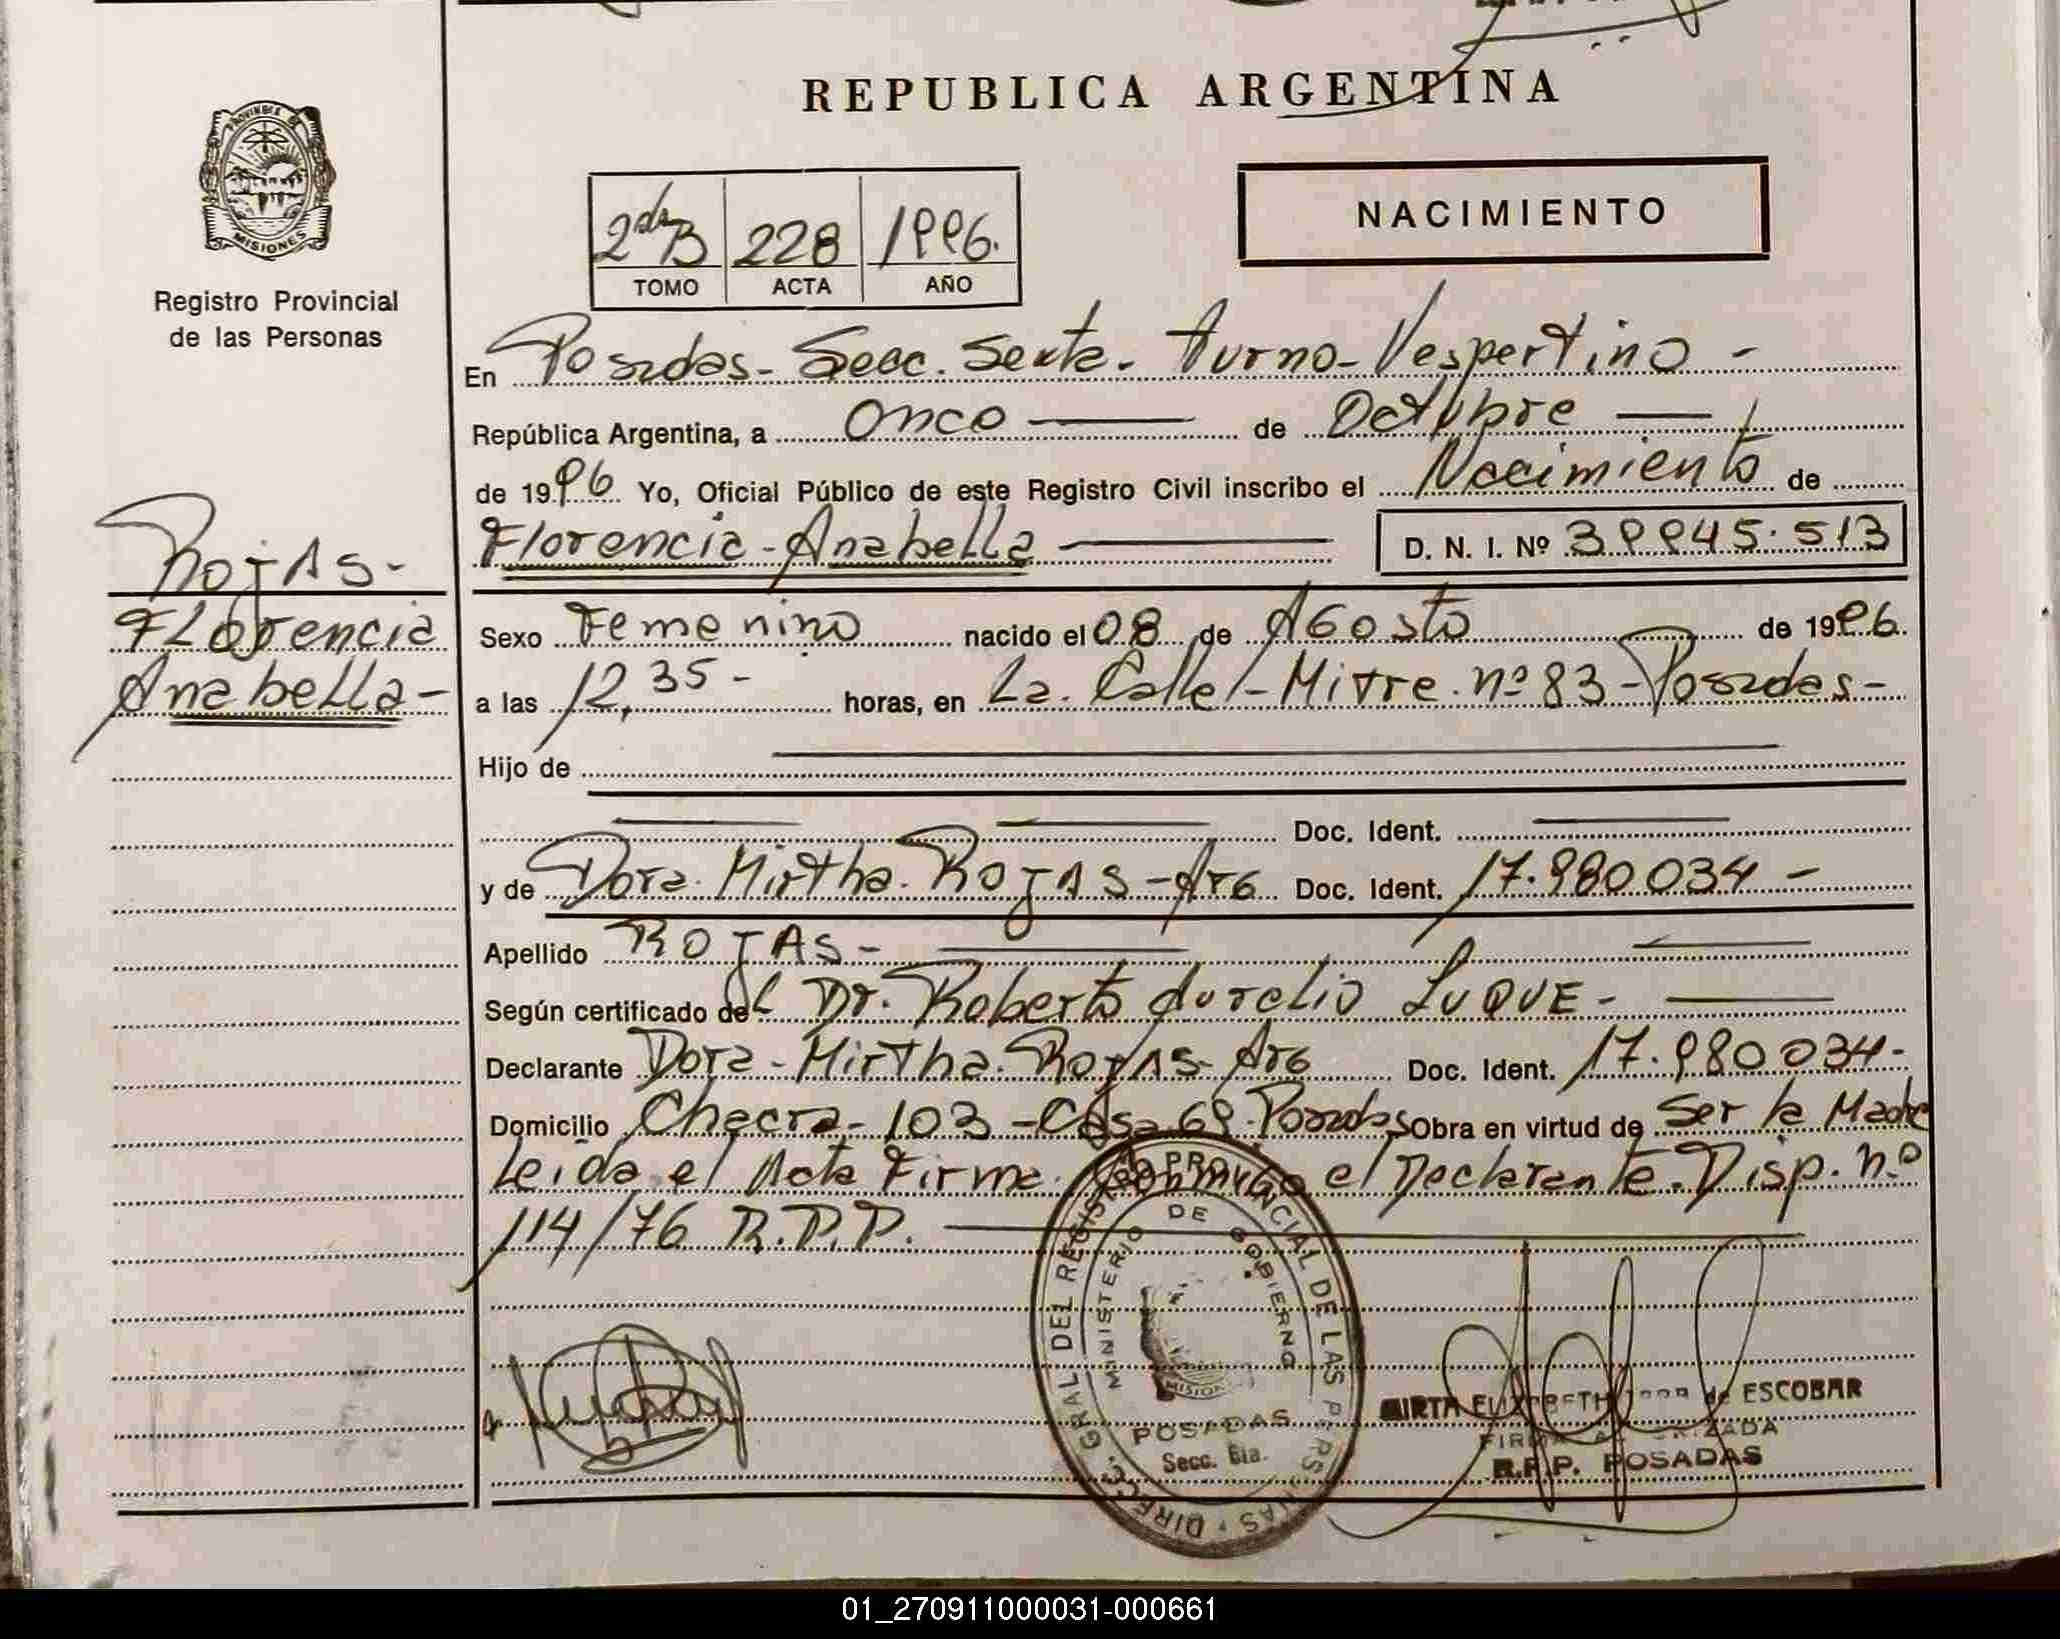 REPUBLICA ARGENTINA
PROVINCIA DE
MISIONES
Registro Provincial
de las Personas
2do B 228 1996.
TOMO ACTA AÑO
NACIMIENTO
En Posadas - Secc. Sexta - Turno - Vespertino -
República Argentina, a Once de Octubre
de 1996 Yo, Oficial Público de este Registro Civil inscribo el Nacimiento de
Florencia - Anabella D. N. I. Nº 39945.513
ROJAS -
Florencia
Anabella -
Sexo Femenino nacido el 08 de Agosto de 1996.
a las 12,35 - horas, en La Calle - Mitre nº 83 - Posadas -
Hijo de
Doc. Ident.
y de Dora Mirtha ROJAS - Arg Doc. Ident. 17.980034 -
Apellido ROJAS -
Según certificado del Dr. Roberto Aurelio LUQUE -
Declarante Dora - Mirtha ROJAS - Arg Doc. Ident. 17.980034 -
Domicilio Chacra - 103 - Casa 69 - Posadas Obra en virtud de Ser la Madre
Leida el Acta Firma conmigo el Declarante. Disp. nº
114/76 R.P.P.
DIRECC. GRAL DEL REGISTRO PROVINCIAL DE LAS PERSONAS
MINISTERIO DE GOBIERNO
MISIONES
POSADAS
Secc. 6ta.
MIRTA ELIZABETH de ESCOBAR
FIRMA AUTORIZADA
R.P.P. POSADAS
01_270911000031-000661